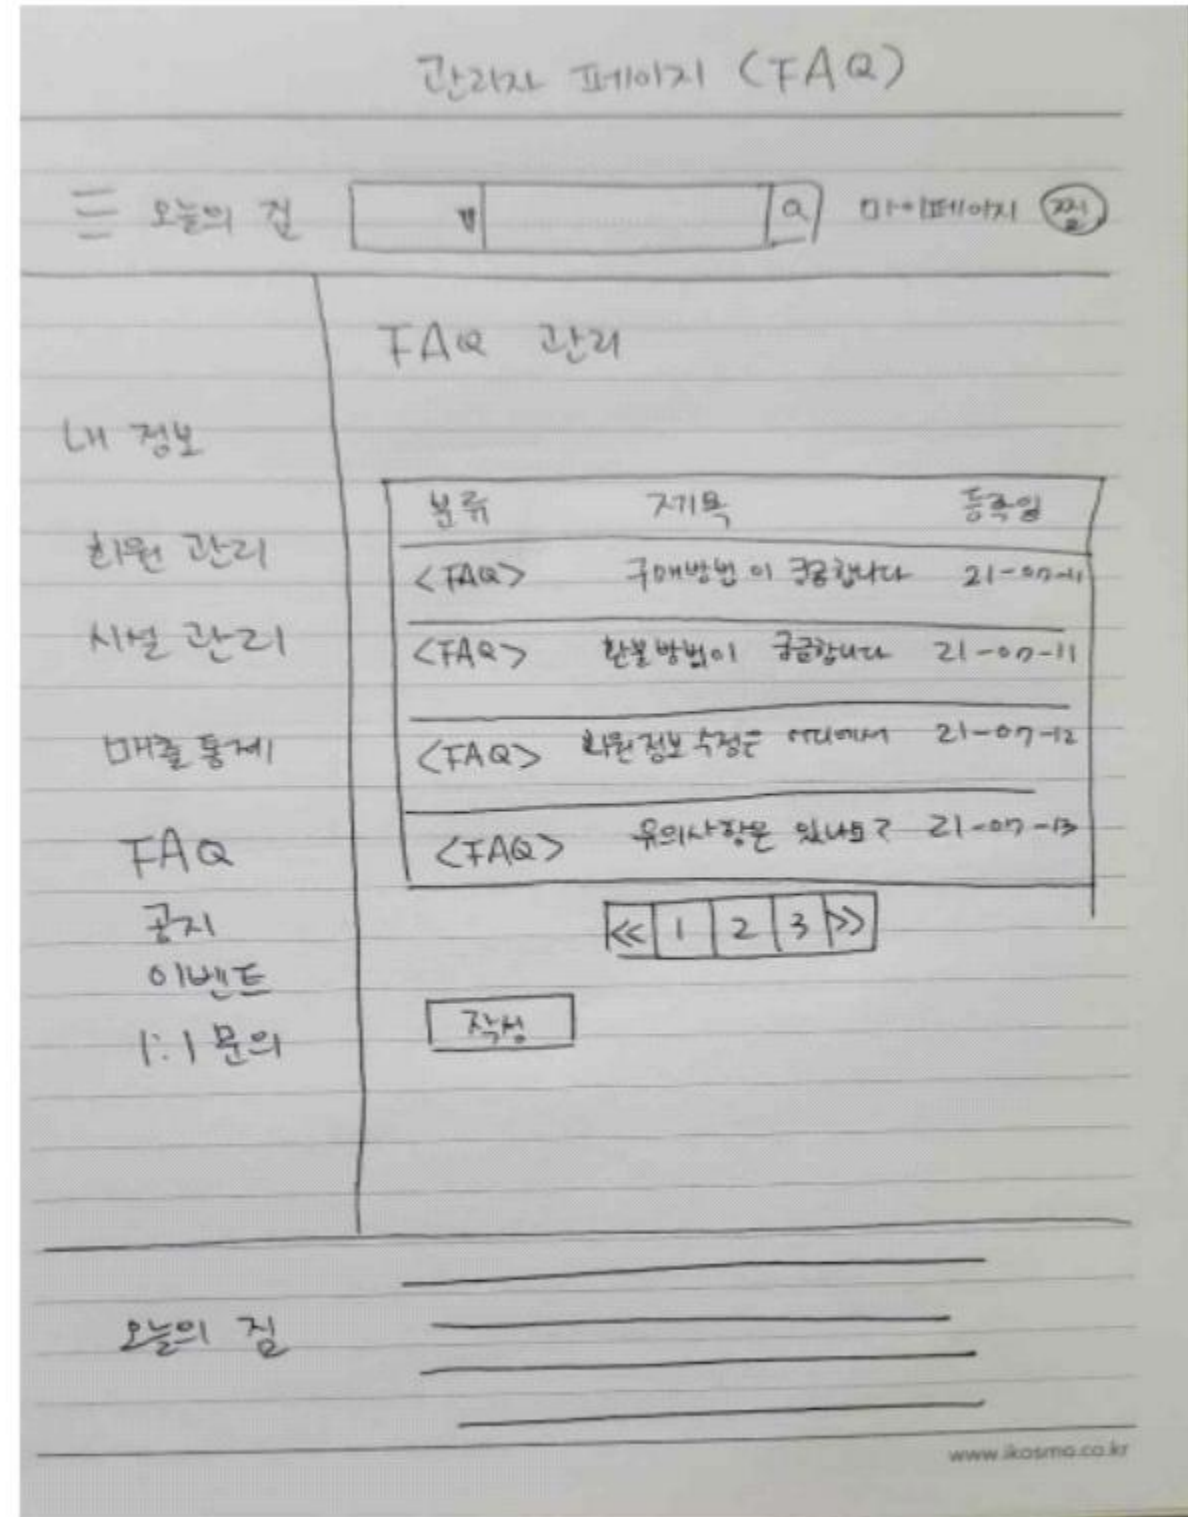 관리자 페이지 (FAQ)
오늘의 짐 Q 마이페이지 찜
FAQ 관리
내 정보
회원 관리
시설 관리
매출 통계
FAQ
공지
이벤트
1:1 문의
분류 제목 등록일
<FAQ> 구매방법이 궁금합니다 21-07-11
<FAQ> 환불방법이 궁금합니다 21-07-11
<FAQ> 회원정보 수정은 어디에서 21-07-12
<FAQ> 유의사항은 있나요? 21-07-13
<< 1 2 3 >>
작성
오늘의 짐
www.ikosmo.co.kr